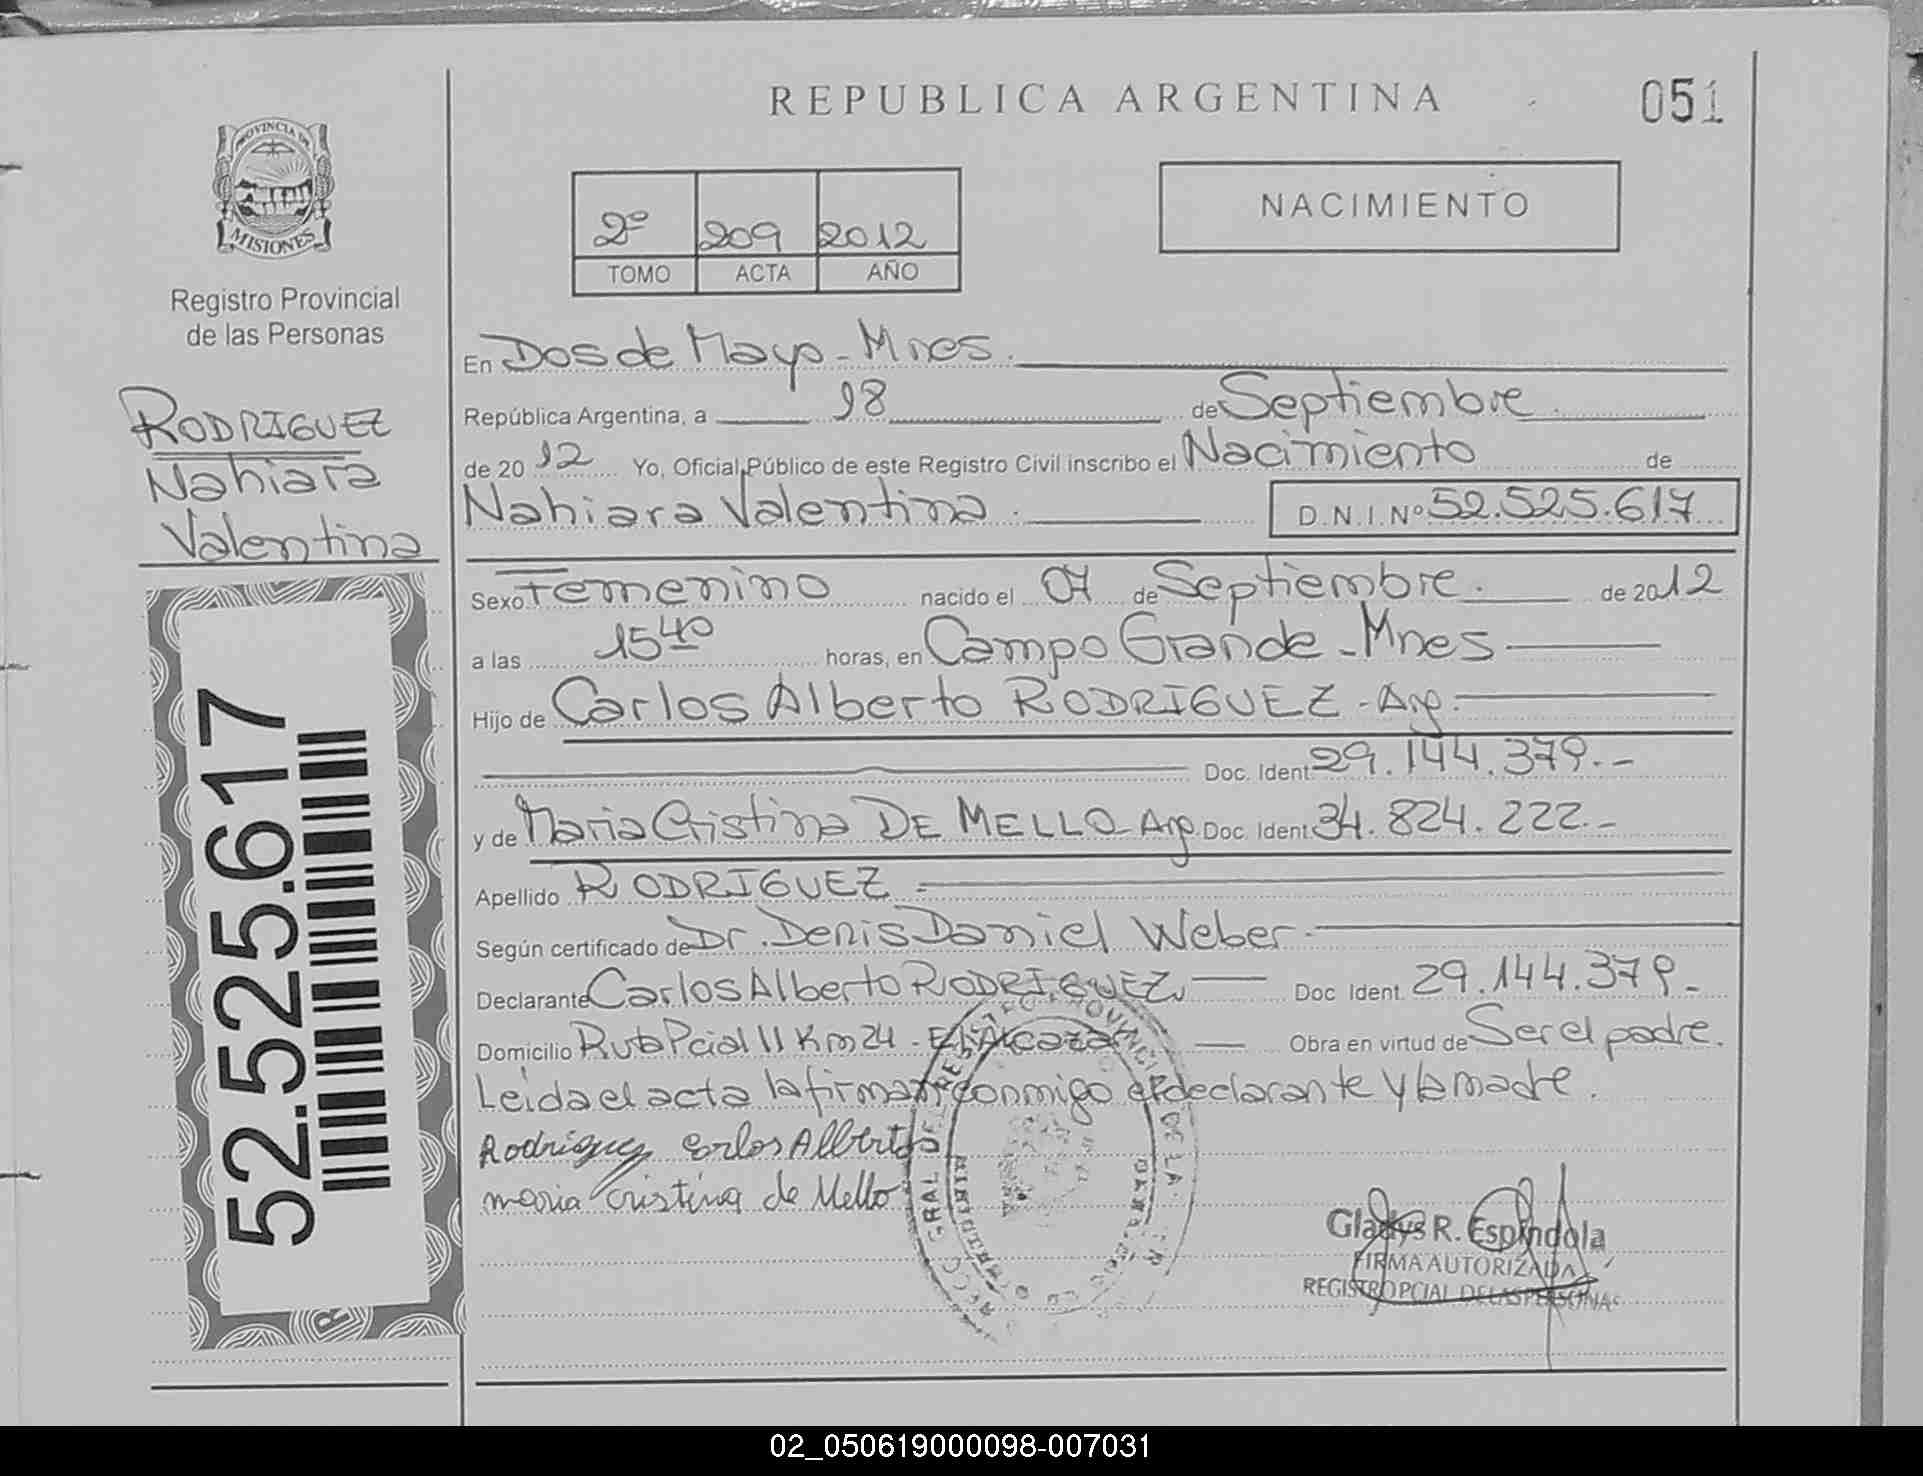 REPUBLICA ARGENTINA
051
PROVINCIA DE
MISIONES
Registro Provincial
de las Personas
2º 209 2012
TOMO ACTA AÑO
NACIMIENTO
RODRIGUEZ
Nahiara
Valentina
52.525.617
En Dos de Mayo - Mnes.
República Argentina, a 18 de Septiembre
de 20 12 Yo, Oficial Público de este Registro Civil inscribo el Nacimiento de
Nahiara Valentina. D.N.I.Nº 52.525.617
Sexo Femenino nacido el 07 de Septiembre. de 2012
a las 15 40 horas, en Campo Grande - Mnes
Hijo de Carlos Alberto RODRIGUEZ - Arg.
Doc. Ident. 29.144.379.-
y de Maria Cristina DE MELLO - Arg. Doc. Ident. 34.824.222.-
Apellido RODRIGUEZ
Según certificado de Dr. Denis Daniel Weber.
Declarante Carlos Alberto RODRIGUEZ Doc Ident. 29.144.379.-
Domicilio Ruta Pcial 11 Km 24 - El Alcazar Obra en virtud de Ser el padre.
Leida el acta la firman conmigo el declarante y la madre.
Rodriguez Carlos Alberto
maria cristina de Mello
Gladys R. Espindola
FIRMA AUTORIZADA
REGISTRO PCIAL DE LAS PERSONAS
02_050619000098-007031